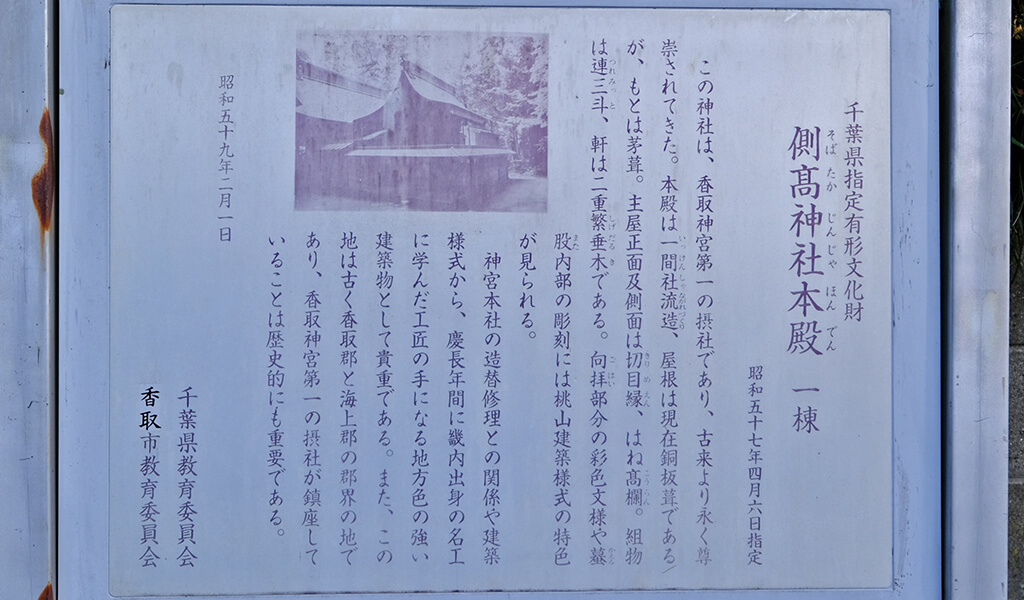 千葉県指定有形文化財
側髙神社本殿 一棟
そば たか じんじゃ ほん でん
昭和五十七年四月六日指定
この神社は、香取神宮第一の摂社であり、古来より永く尊
崇されてきた。本殿は一間社流造、屋根は現在銅板葺である
が、もとは茅葺。主屋正面及側面は切目縁、はね髙欄。組物
は連三斗、軒は二重繁垂木である。向拝部分の彩色文様や蟇
股内部の彫刻には桃山建築様式の特色
が見られる。
神宮本社の造替修理との関係や建築
様式から、慶長年間に畿内出身の名工
に学んだ工匠の手になる地方色の強い
建築物として貴重である。また、この
地は古く香取郡と海上郡の郡界の地で
あり、香取神宮第一の摂社が鎮座して
いることは歴史的にも重要である。
昭和五十九年二月一日
千葉県教育委員会
香取市教育委員会